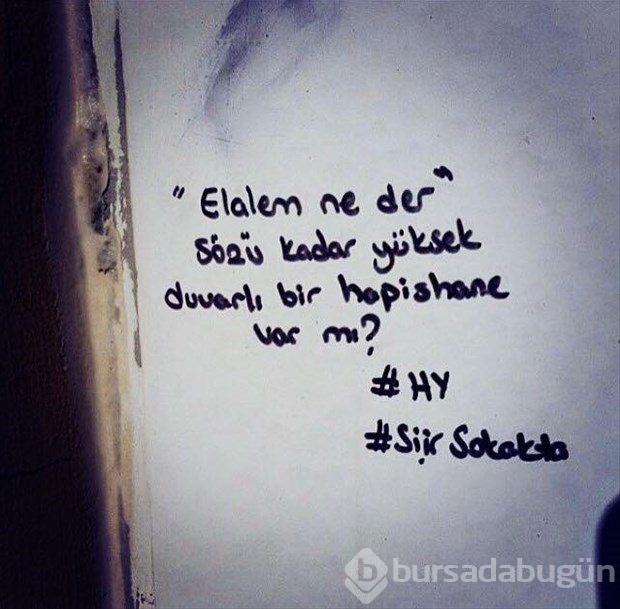 "Elalem ne der"
sözü kadar yüksek
duvarlı bir hapishane
var mı?
#HY
#Şiir Sokakta
b bursadabugün